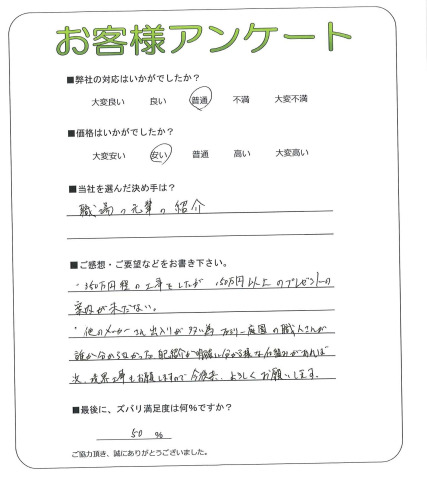 お客様アンケート
■弊社の対応はいかがでしたか？
大変良い 良い 普通 不満 大変不満
■価格はいかがでしたか？
大変安い 安い 普通 高い 大変高い
■当社を選んだ決め手は？
職場の先輩の紹介
■ご感想・ご要望などをお書き下さい。
・350万円程の工事をしたが 150万円以上のプレゼントの
案内が来てない。
・他のメーカーさん出入りが多い為 庭園の職人さんが
誰か分からなかった。 明確に分かる様な仕組みがあれば
次、外工事もお願いしますので今後共、よろしくお願いします。
■最後に、ズバリ満足度は何％ですか？
50 ％
ご協力頂き、誠にありがとうございました。